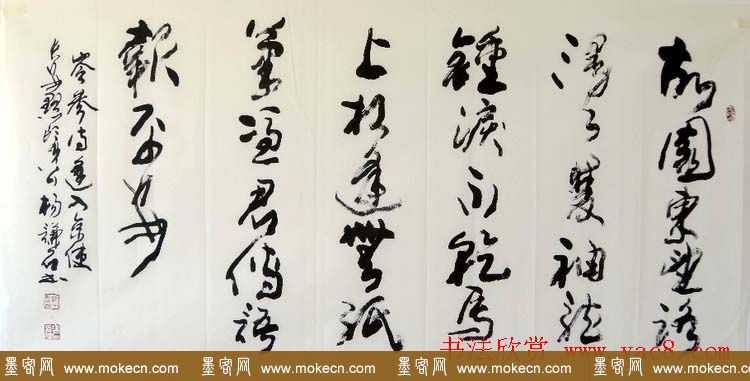 故園東望路
漫々雙袖龍
鍾淚不乾馬
上相逢無紙
筆憑君傳語
報平安
岑參詩逢入京使
楊謙
书法欣赏 www.yac8.com
墨客网 www.mokecn.com 墨客网 www.mokecn.com 墨客网 www.mokecn.com 墨客网 www.mokecn.com